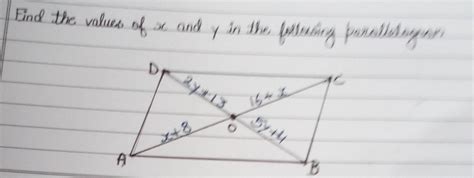 Find the values of x and y in the following parallelogram
D
C
2y+13
O
x+8
5y+4
A
B